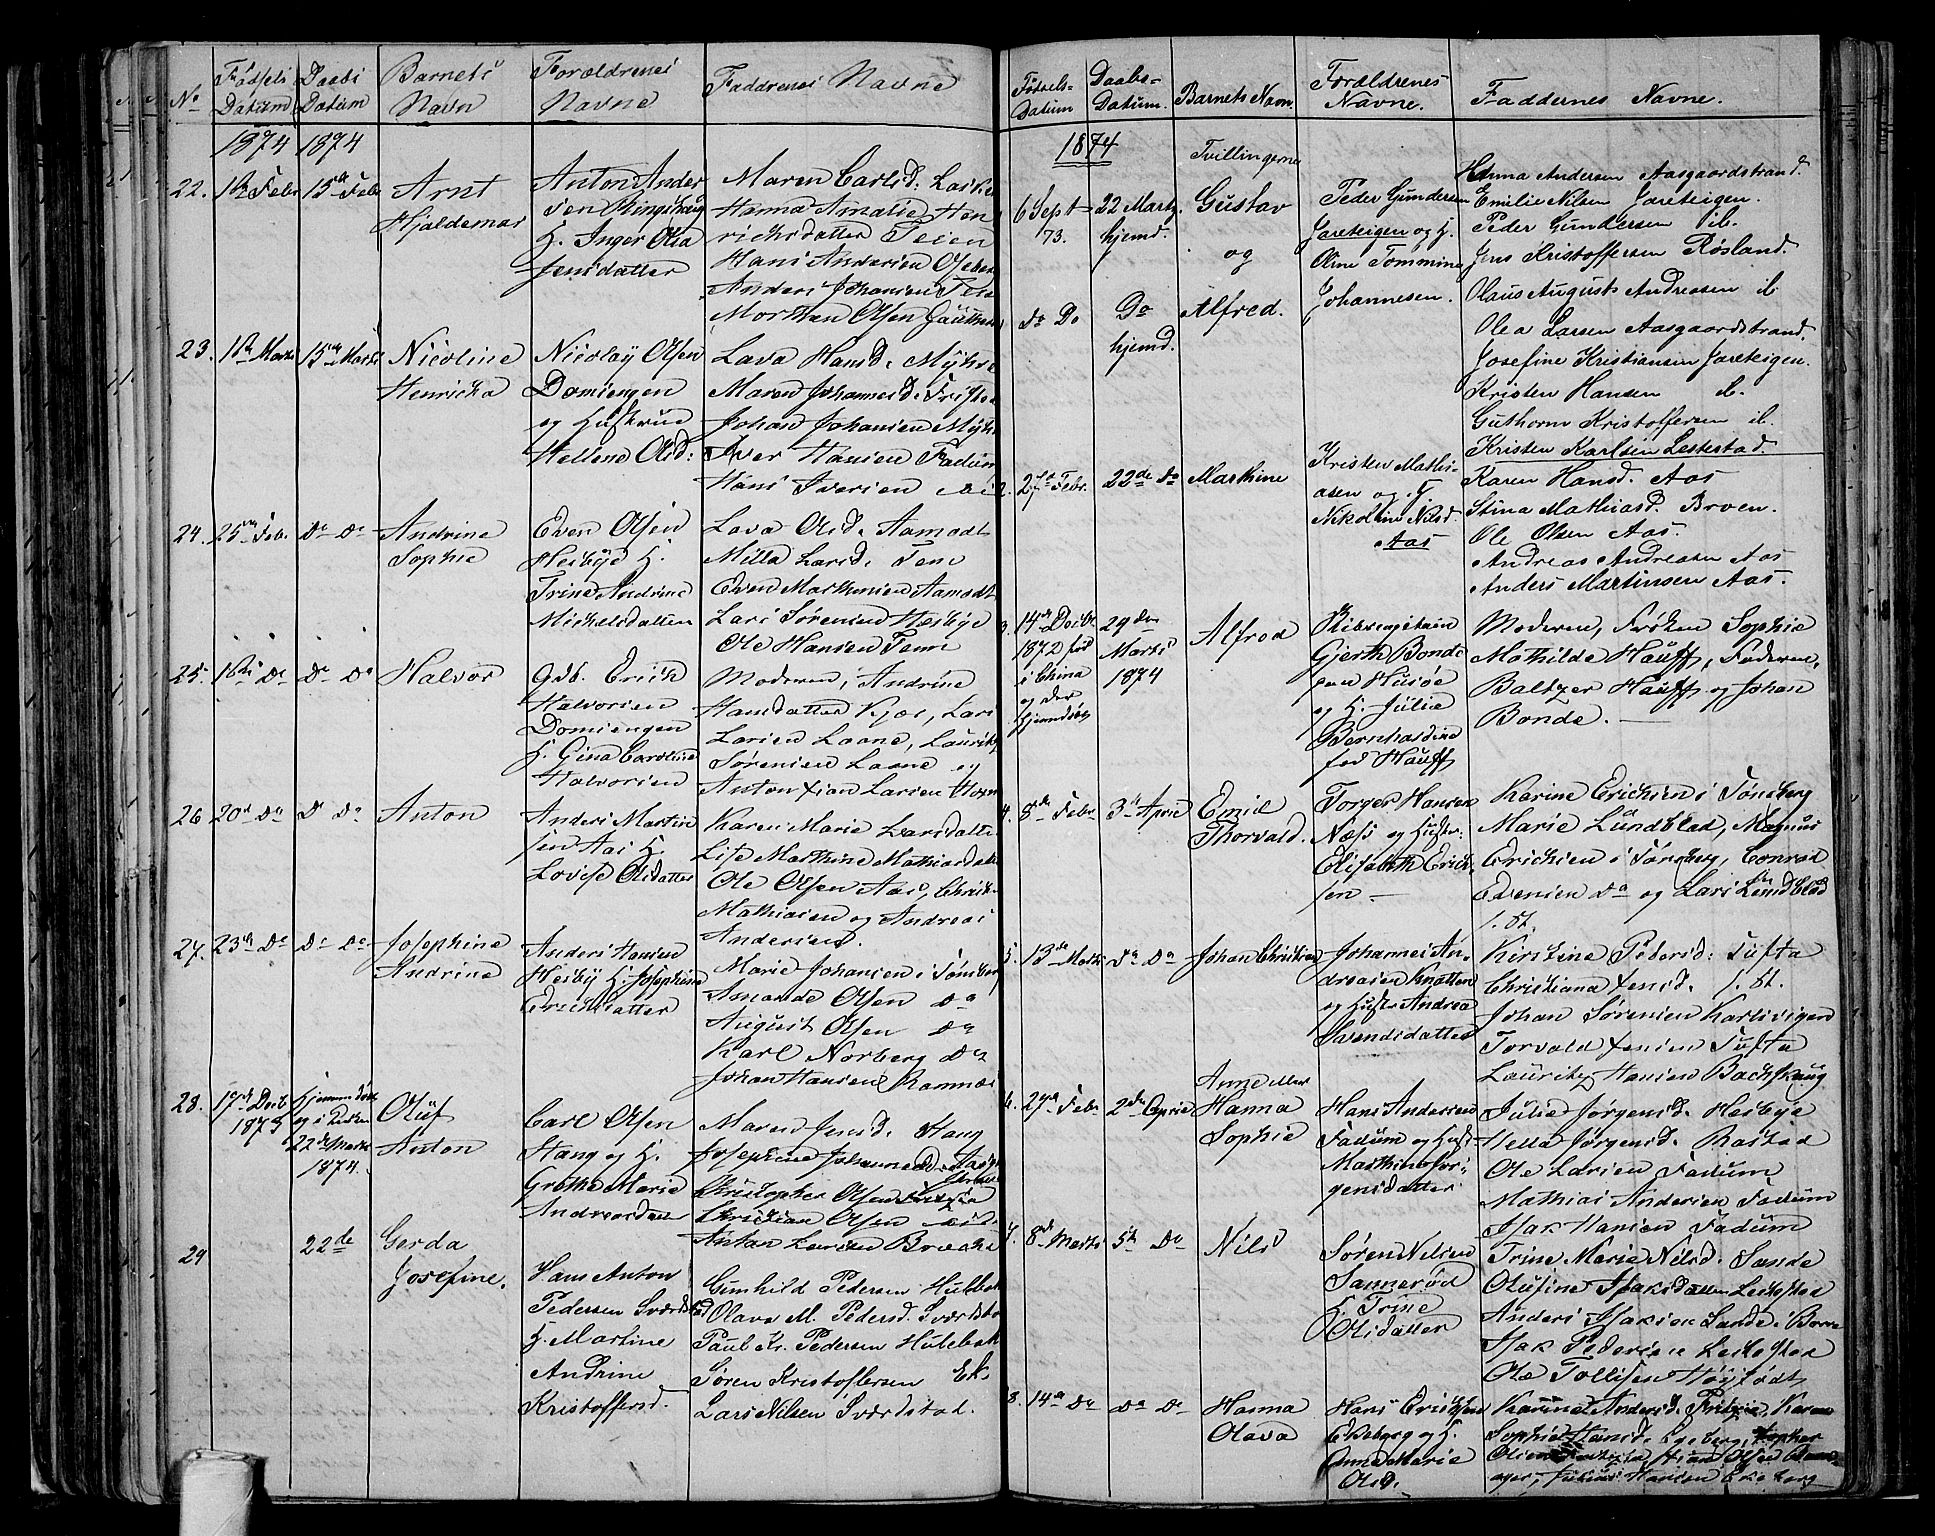 No
Fødsels
Datum
Daabs
Datum
Barnets
Navn
Forældrenes
Navne
Faddrenes Navne
1874 1874
22.
15de Febr
Arnt
Hjaldemar
Anton Ander
sen Ringshaug
H. Inger Olia
Jensdatter
Maren Carlsd:
Hanna Amalie Hen
richsdatter Teien
Hans Andersen
Anders Johansen
Morthen Olsen
23.
15de Marts
Nicoline
Henricka
Nicolay Olsen
Domsengen
og Hustrue
Hellene Olsd:
Lava Hansd.
Maren Johannesd.
Johan Johansen
Iver Hansen Fadum
Hans Iversen
24.
25de Feb.
Do Do
Andrine
Sophie
Even Olsen
Hesbye H.
Trine Andrine
Michelsdatter
Lava Olsd. Aamodt
Milla Larsd. Tem
Even Marthinsen Aamodt
Lars Sørensen Hesbye
Ole Hansen Tem
25.
16de Do
Do Do
Halvor
Gdb. Erich
Halvorsen
Domsengen
H. Gina Caroline
Halvorsen
Moderen, Andrine
Hansdatter Kjær, Lars
Larsen Laane, Lauritz
Sørensen Laane og
Anton Larsen
26
20de Do
Do Do
Anton
Anders Martin
sen Aas H.
Lovise Olsdatter
Karen Marie Larsdatter
Lise Marthine Mathiasdatter
Ole Olsen Aas, Christ.
Mathiasen og Andreas
Andersen.
27.
23de Do
Do Do
Josephine
Andrine
Anders Hansen
Hesby H. Josephine
Erichsdatter
Marie Johansen i Tønsberg
Amande Olsen Do
August Olsen Do
Karl Norberg Do
Johan Hansen Ramnæs
28.
17de Decb
1873
Hjemmedøbt
og i Kirken
22de Marts
1874.
Oluf
Anton
Carl Olsen
Stang og H.
Grethe Marie
Andreasdatter
Maren Jensd. Stang
Josephine Johannesd.
Christopher Olsen
Christian Olsen
Anton Larsen
29
22de
Gerda
Josefine.
Hans Anton
Pedersen Sværdstad
H. Martine
Andrine
Kristoffersd.
Gunhild Pedersen
Olava M. Pedersd. Sværdstad
Paul Kr. Pedersen Hulebak
Søren Kristoffersen Ek.
Lars Nilsen Sværdstad.
Fødsels-
Datum
Daabs-
Datum.
Barnets Navn.
Forældrenes
Navne.
Faddernes Navne.
1874
Tvillingerne
6 Sept
73.
22 Marts.
hjemd.
Gustav
og
Do Do
Do
hjemd.
Alfred.
Peder Gundersen
Jareteigen og H.
Oline Tommine
Johannesen.
Hanna Andersen Aasgaardstrand.
Emilie Nilsen Jareteigen.
Peder Gundersen ib.
Jens Kristoffersen Røsland.
Olaus August Andreasen ib
Olea Larsen Aasgaardstrand.
Josefine Kristiansen Jareteigen.
Kristen Hansen ib.
Guthorm Kristoffersen ib.
Kristen Karlsen Lestestad.
2.
27de Febr.
22de Do
Marthine
Kristen Mathi-
asen og H.
Nikoline Nilsd.
Aas
Karen Hansd. Aas
Stina Mathiasd. Broen.
Ole Olsen Aas.
Andreas Andreasen Aas
Anders Martinsen Aas.
3.
14de Decbr.
1872 fød
i China
og der
hjemmedøbt
29de
Marts
1874
Alfred
Skibscapitain
Gjerth Bonde
paa Husøe
og H. Julie
Bernhardine
fød Hauff
Moderen, Frøken Sophie
Mathilde Hauff, Faderen,
Baltzer Hauff og Johan
Bonde.
4.
8de Febr
3de April
Emil
Thorvald.
Torger Hansen
Næss og Hustr:
Elisabeth Erich
sen
Karine Erichsen i Tønsberg
Marie Lundblad, Magnus
Erichsen i Tønsberg, Conrad
Evensen Do og Lars Lundblad
5.
13de Marts
Do Do
Johan Christian
Johannes An-
dreasen Knatten
og Hustr Andrea
Svendsdatter
Kirstine Pedersd: Tufta
Christiana Jensd.
Johan Sørensen Karlsvigen
Torvald Jensen Tufta
Lauritz Hansen Backskaug
6.
27de Febr
2den April
Anne eller
Hanna
Sophie
Hans Andersen
Fadum og Hust
Marthine Jør
gensdatter
Julie Jørgensd. Hesbye
Hella Jørgensd. Rastad
Ole Larsen Fadum
Mathias Andersen Fadum
Isak Hansen Fadum
7.
8de Marts
5te Do
Nils
Søren Nilsen
Sannerød
H. Trine
Olsdatter
Trine Marie Nilsd. Sande
Olufine Isaksdatter
Anders Isaksen Sande i Borre
Isak Pedersen
Ole Tollefsen
8.
14de Do
Do Do
Hanna
Olava
Hans Erichsen
Ekeberg og H.
Anne Marie
Olsd.
Karine Andersd.
Sophie Hansd. Egeberg,
Julius Hansen Ekeberg